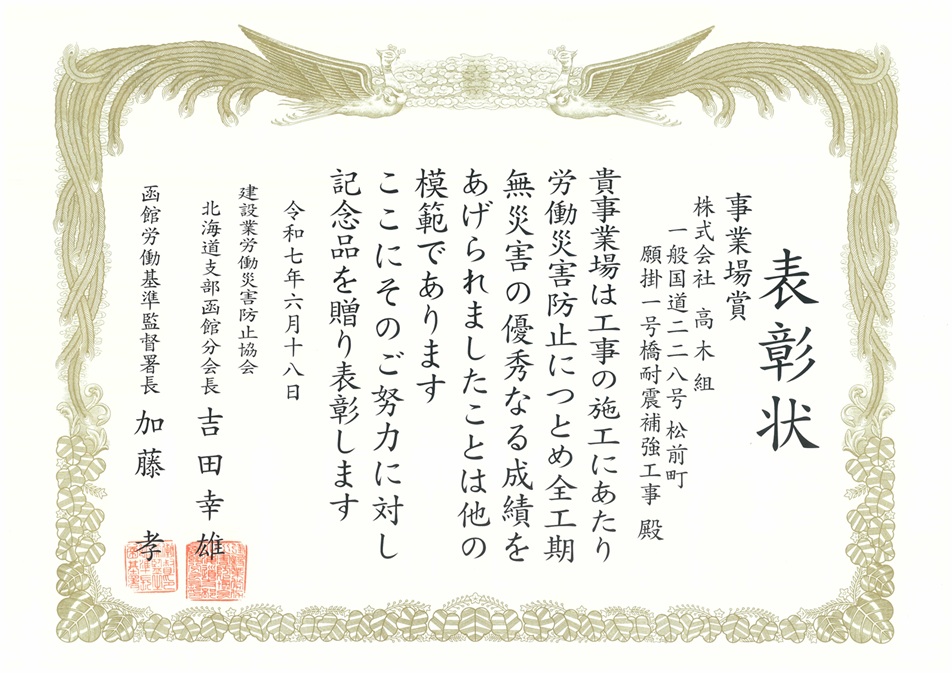 表彰状
事業場賞
株式会社 高木組
一般国道二二八号 松前町
願掛一号橋耐震補強工事 殿
貴事業場は工事の施工にあたり
労働災害防止につとめ全工期
無災害の優秀なる成績を
あげられましたことは他の
模範であります
ここにそのご努力に対し
記念品を贈り表彰します
令和七年六月十八日
建設業労働災害防止協会
北海道支部函館分会長 吉田幸雄
函館労働基準監督署長 加藤 孝